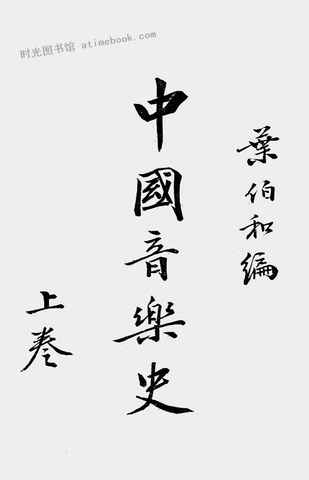 时光图书馆 atimebook.com
葉伯和編
中國音樂史
上卷